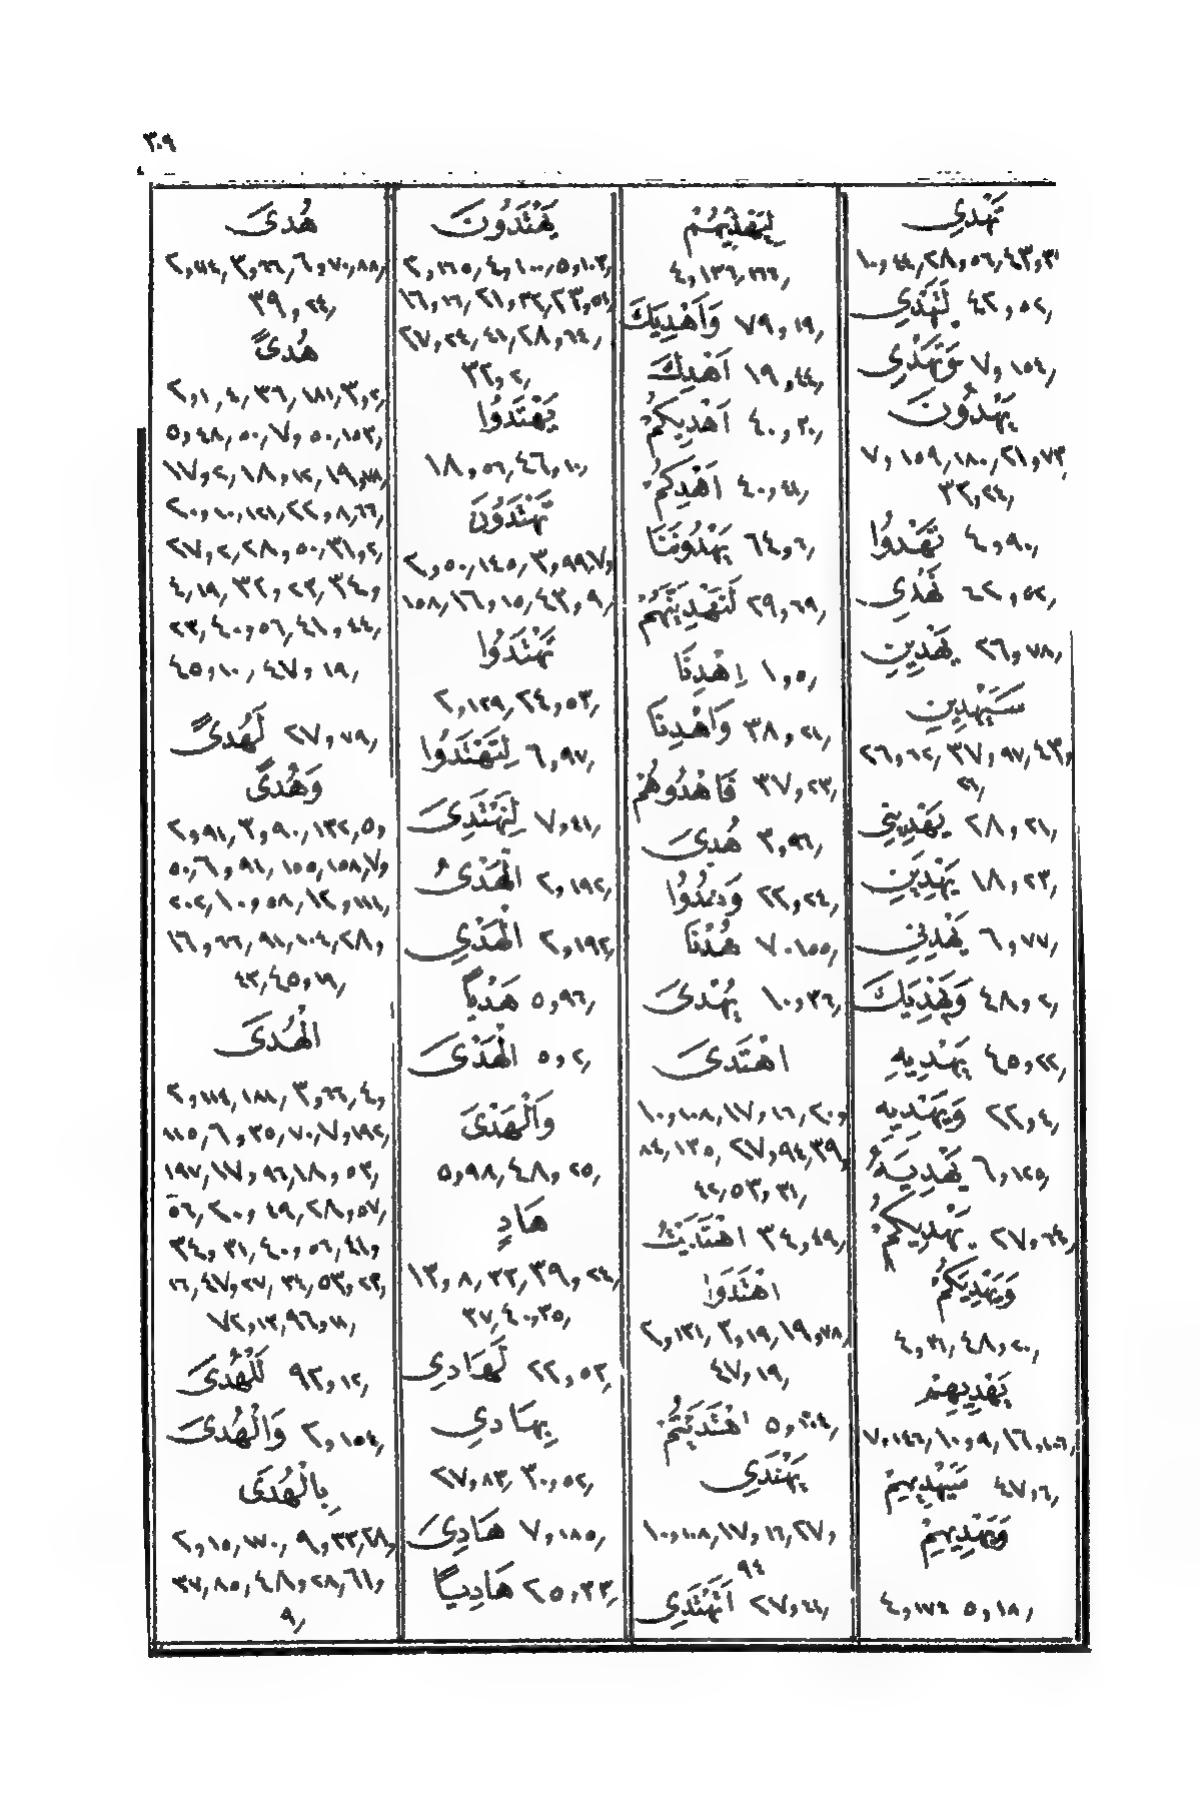 ٣٠٩
تَهْدِي
١٠,٤٤,٢٨,٥٦,٤٣,٣١
لَتَهْدِي ٤٢,٥٢,
وَتَهْدِي ٧,١٥٤,
يَهْدُونَ
٧,١٥٩,١٨٠,٢١,٧٣,
٣٢,٢٤,
تَهْدُوا ٤,٩٠,
لَهْدِي ٤٢,٥٢,
يَهْدِينِ ٢٦,٧٨,
سَيَهْدِينِ
٢٦,٦٢,٣٧,٩٧,٤٣,
٢٦,
يَهْدِيَنِي ٢٨,٢١,
يَهْدِيَنِ ١٨,٢٣,
يَهْدِنِي ٦,٧٧,
وَيَهْدِيَكَ ٤٨,٢,
يَهْدِيهِ ٤٥,٢٢,
وَيَهْدِيهِ ٢٢,٤,
يَهْدِيَهُ ٦,١٢٥,
يَهْدِيكُمْ ٢٧,٦٤,
وَيَهْدِيَكُمْ
٤,٢٦,٤٨,٢٠,
يَهْدِيهِمْ
٧,١٤٦,١٠,٩,١٦,١٠٦,
سَيَهْدِيهِمْ ٤٧,٦,
وَيَهْدِيهِمْ
٤,١٧٤ ٥,١٨,
لِيَهْدِيَهُمْ
٤,١٣٦,١٦٦,
وَأَهْدِيَكَ ٧٩,١٩,
أَهْدِكَ ١٩,٤٤,
أَهْدِيكُمْ ٤٠,٢٠,
أَهْدِكُمْ ٤٠,٤١,
يَهْدُونَنَا ٦٤,٦,
لَنَهْدِيَنَّهُمْ ٢٩,٦٩,
اِهْدِنَا ١,٥,
وَاهْدِنَا ٣٨,٢١,
فَاهْدُوهُمْ ٣٧,٢٣,
هُدِيَ ٣,٩٦,
وَهُدُوا ٢٢,٢٤,
هُدْنَا ٧,١٥٥,
يُهْدَى ١٠,٣٦,
اهْتَدَى
١٠,١٠٨,١٧,١٦,٢٠,
٨٤,١٣٥,٢٧,٩٤,٣٩,
٤٢,٥٣,٣١,
اهْتَدَيْتُ ٣٤,٤٩,
اهْتَدَوْا
٢,١٣١,٣,١٩,١٩,٧٨,
٤٧,١٩,
اهْتَدَيْتُمْ ٥,١٠٤,
يَهْتَدِي
١٠,١٠٨,١٧,١٦,٢٧,
٩٤
أَتَهْتَدِي ٢٧,٤٤,
يَهْتَدُونَ
٢,١٦٥,٤,١٠٠,٥,١٠٣,
١٦,١٦,٢١,٣٢,٢٣,٥١,
٢٧,٢٤,٤١,٢٨,٦٤,
٣٢,٢,
يَهْتَدُوا
١٨,٥٦,٤٦,١٠,
تَهْتَدُونَ
٢,٥٠,١٤٥,٣,٩٩,٧,
١٥٨,١٦,١٥,٤٣,٩,
تَهْتَدُوا
٢,١٢٩,٢٤,٥٣,
لِتَهْتَدُوا ٦,٩٧,
لِنَهْتَدِيَ ٧,٤١,
الْهَدْيُ ٢,١٩٢,
الْهَدْيِ ٢,١٩٢,
هَدْيًا ٥,٩٦,
الْهَدْيَ ٥,٢,
وَالْهَدْيَ
٥,٩٨,٤٨,٢٥,
هَادٍ
١٣,٨,٢٢,٣٩,٢٤,
٣٧,٤٠,٣٥,
لَهَادِي ٢٢,٥٢,
بِهَادِي
٢٧,٨٣,٣٠,٥٢,
هَادِيَ ٧,١٨٥,
هَادِيًا ٢٥,٣٣,
هُدَى
٢,١١٤,٣,٦٦,٦,٧٠,٨٨,
٣٩,٢٤,
هُدًى
٢,١,٤,٣٦,١٨١,٣,٢,
٥,٤٨,٥٠,٧,٥٠,١٥٣,
١٧,٢,١٨,١٢,١٩,٧٨,
٢٠,١٠,١٢١,٢٢,٨,٦٦,
٢٧,٢,٢٨,٥٠,٣١,٢,
٤,١٩,٣٢,٢٣,٣٤,
٢٣,٤٠,٥٦,٤١,٤٤,
٤٥,١٠,٤٧,١٩,
لَهُدًى ٢٧,٧٩,
وَهُدًى
٢,٩١,٣,٩٠,١٣٢,٥,
٥٠,٦,٩١,١٥٥,١٥٨,٧,
٢٠٢,١٠,٥٨,١٢,١١١,
١٦,٦٦,٩١,١٠٤,٢٨,
٤٣,٤٥,١٩,
الْهُدَى
٢,١١٤,١٨١,٣,٦٦,٤,
١١٥,٦,٣٥,٧٠,٧,١٩٢,
١٩٧,١٧,٩٦,١٨,٥٣,
٥٦,٢٠,٤٩,٢٨,٥٧,
٣٤,٣١,٤٠,٥٦,٤١,
١٦,٤٧,٢٧,٣٤,٥٣,٢٣,
٧٢,١٢,٩٦,١١,
لَلْهُدَى ٩٢,١٢,
وَالْهُدَى ٢,١٥٤,
بِالْهُدَى
٢,١٥,١٧٠,٩,٣٣,٢٨,
٣٧,٨٥,٤٨,٢٨,٦١,
٩,